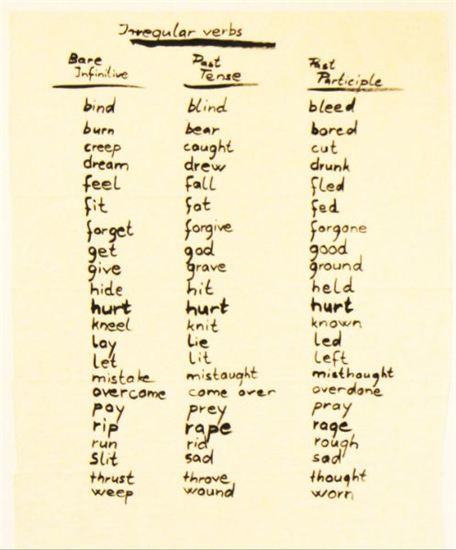 Irregular verbs
Bare Infinitive Past Tense Past Participle
bind blind bleed
burn bear bored
creep caught cut
dream drew drunk
feel fall fled
fit fat fed
forget forgive forgone
get god good
give grave ground
hide hit held
hurt hurt hurt
kneel knit known
lay lie led
let lit left
mistake mistaught misthought
overcome come over overdone
pay prey pray
rip rape rage
run rid rough
slit sad sad
thrust throve thought
weep wound worn